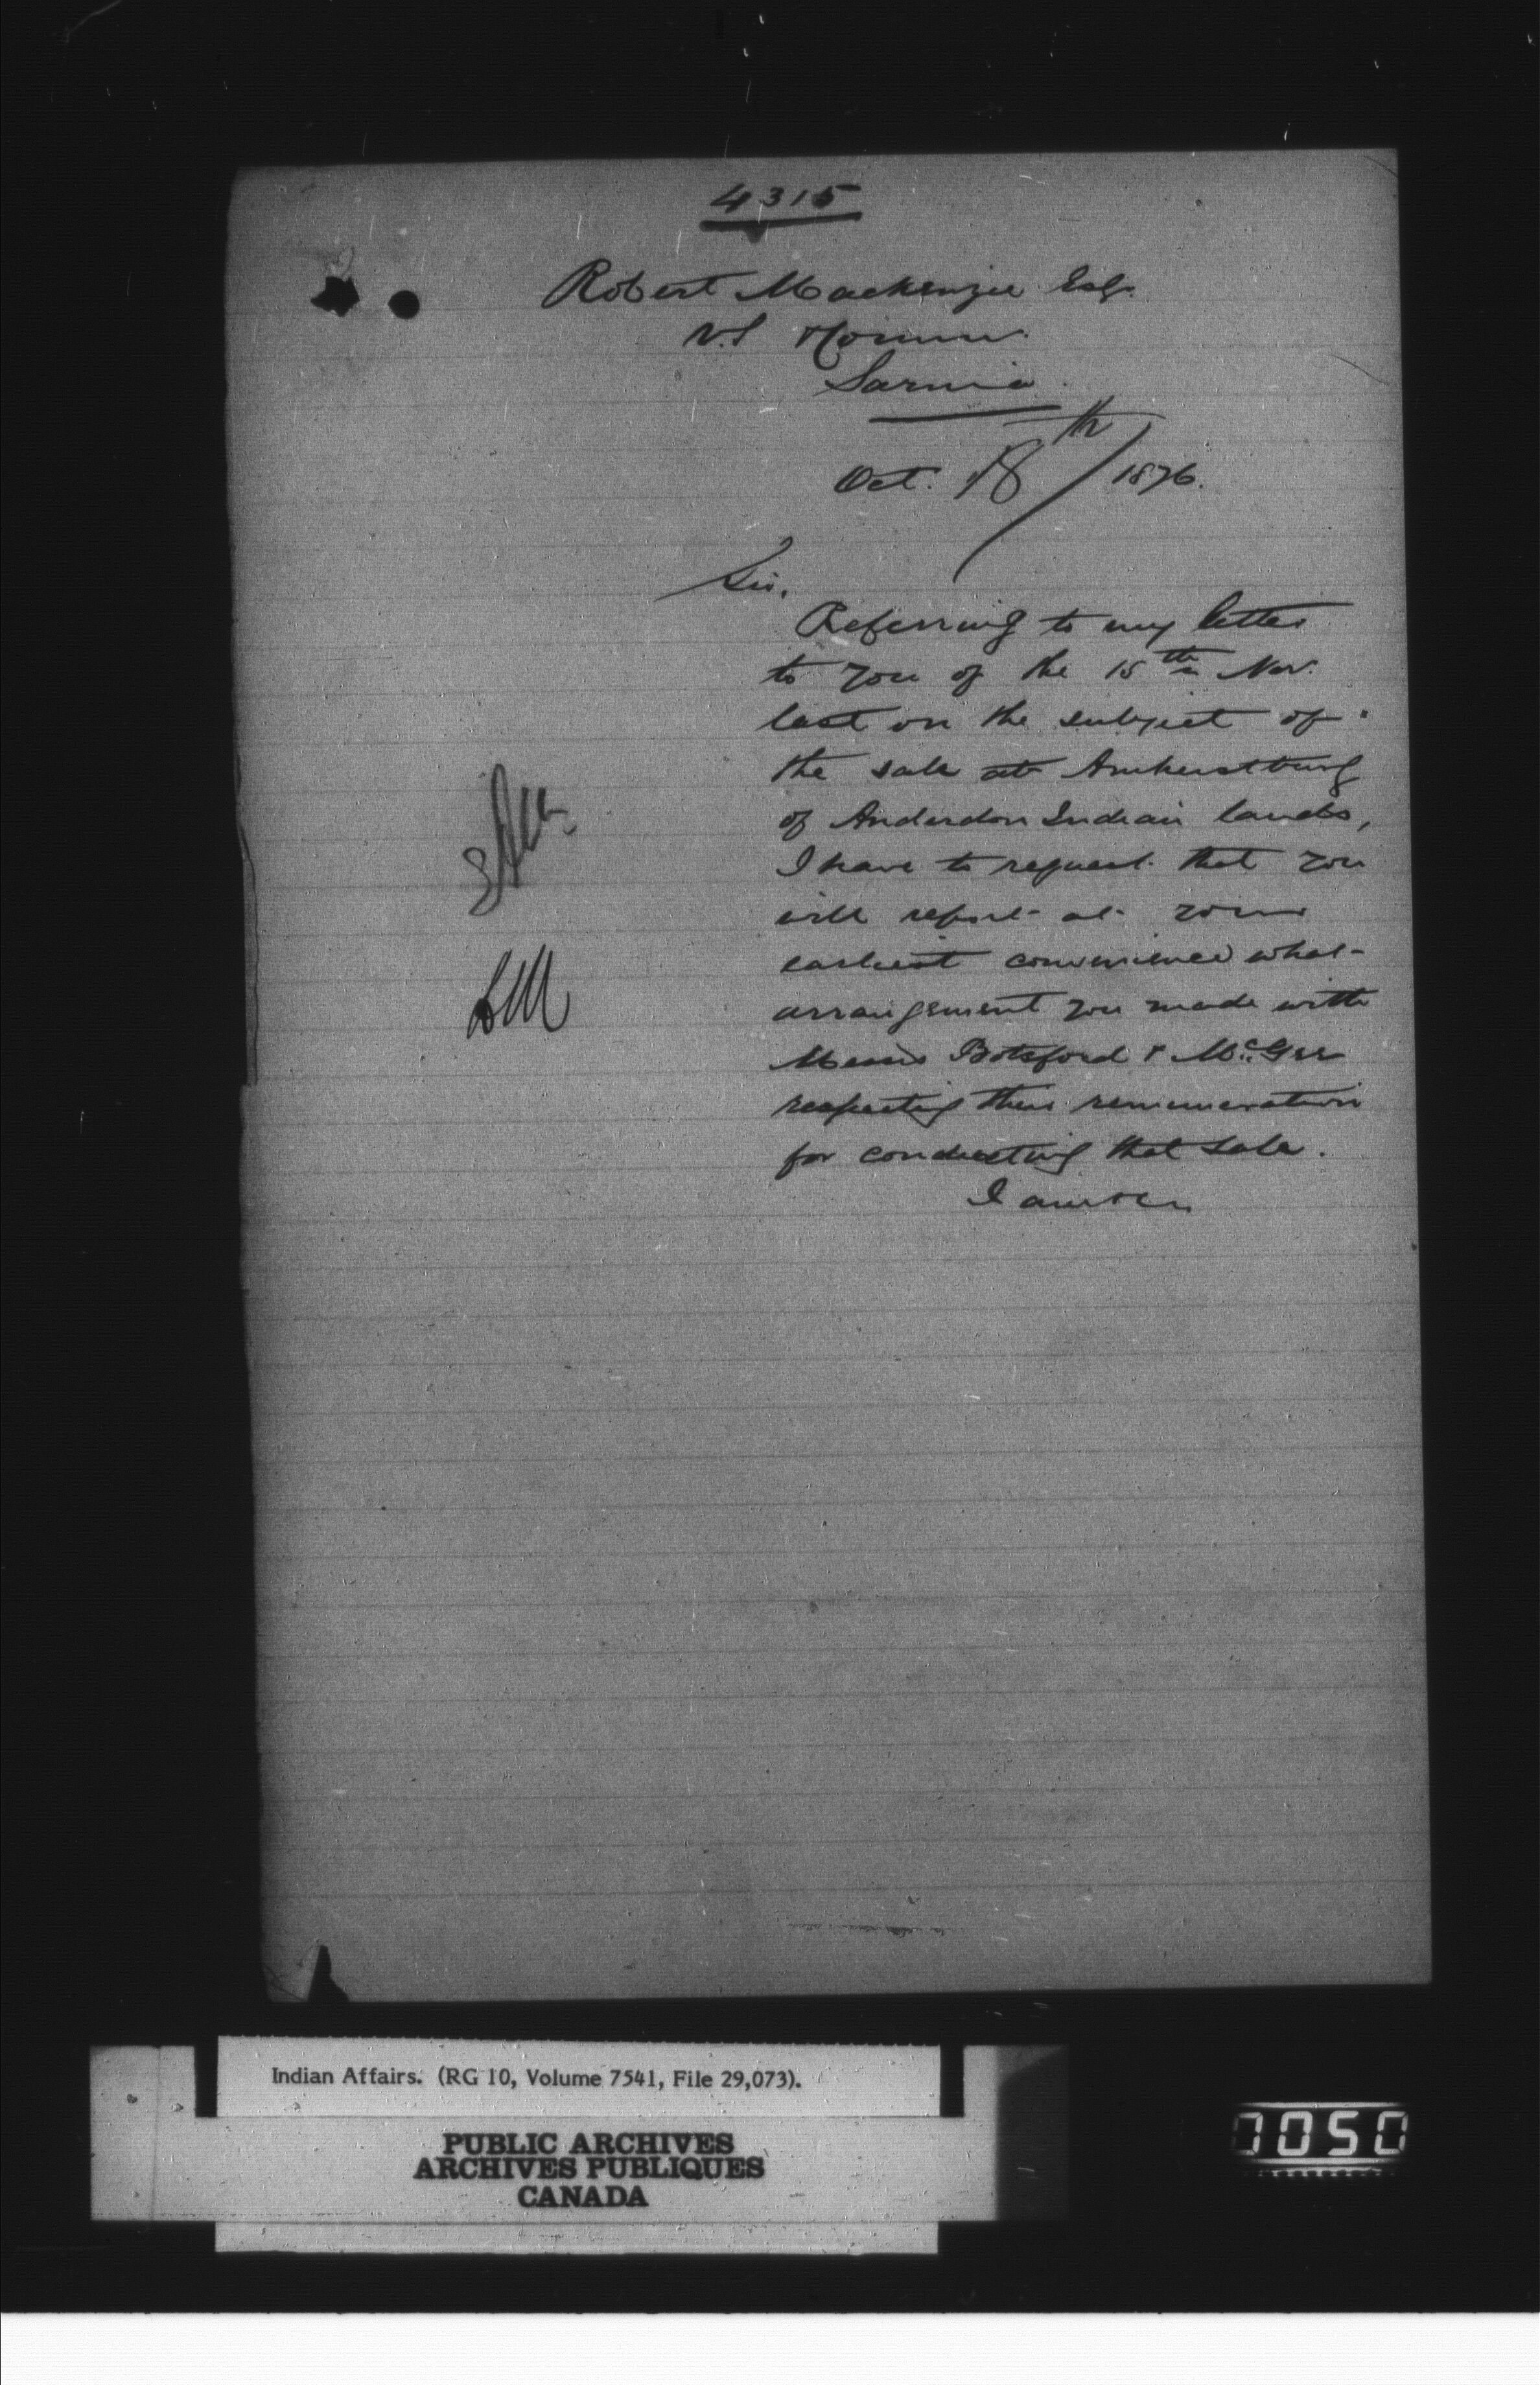 4315
Robert Mackenzie Esq.
V.S Commr.
Sarnia
Oct. 18th / 1876.
Sir,
Referring to my letter
to you of the 15th Nov.
last on the subject of
the sale at Amherstburg
of Anderdon Indian lands,
I have to request that you
will report at your
earliest convenience what
arrangement you made with
Messrs Botsford & McGee
respecting their remuneration
for conducting that sale.
I am &c
Indian Affairs. (RG 10, Volume 7541, File 29,073).
PUBLIC ARCHIVES
ARCHIVES PUBLIQUES
CANADA
0050